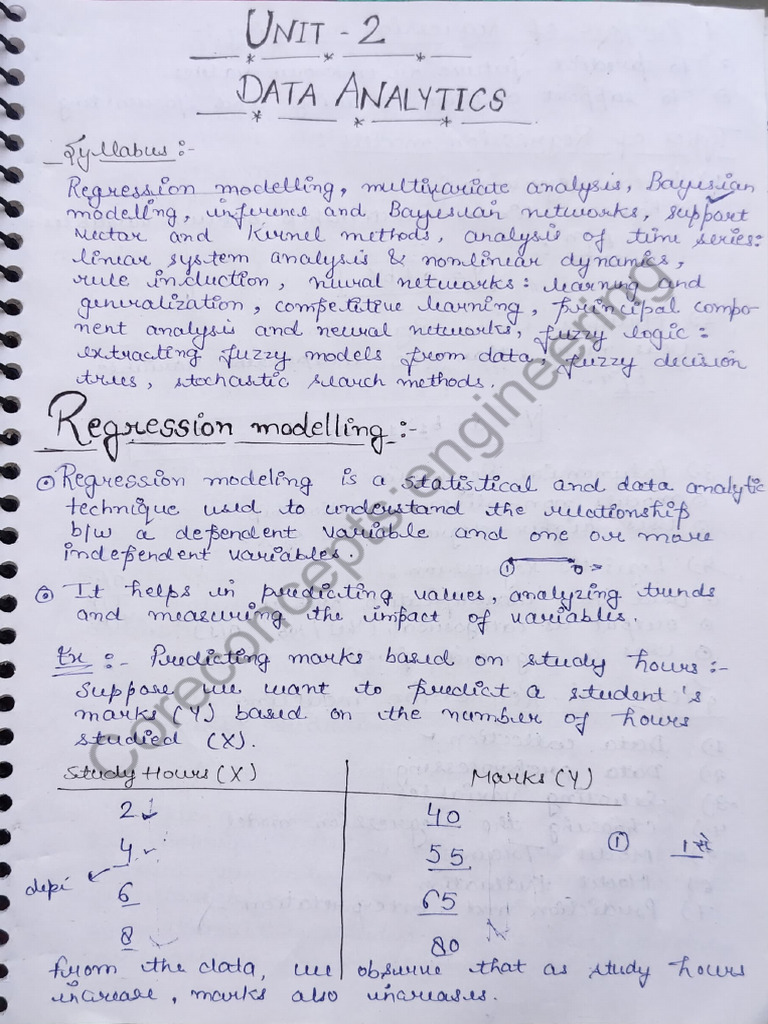 UNIT - 2
DATA ANALYTICS
Syllabus :-
Regression modelling, multivariate analysis, Bayesian
modelling, inference and Bayesian networks, support
vector and Kernel methods, analysis of time series:
linear system analysis & nonlinear dynamics,
rule induction, neural networks: learning and
generalization, competitive learning, principal compo-
nent analysis and neural networks, fuzzy logic:
extracting fuzzy models from data, fuzzy decision
trees, stochastic search methods.
Regression modelling :-
Regression modeling is a statistical and data analytic
technique used to understand the relationship
b/w a dependent variable and one or more
independent variables.
①
It helps in predicting values, analyzing trends
and measuring the impact of variables.
Ex :- Predicting marks based on study hours :-
Suppose we want to predict a student's
marks (Y) based on the number of hours
studied (X).
Study Hours (X) Marks (Y)
2 40
4 55 ① 1 से
depi
6 65
8 80
from the data, we observe that as study hours
increase, marks also increases.
Coreconcepts.engineering